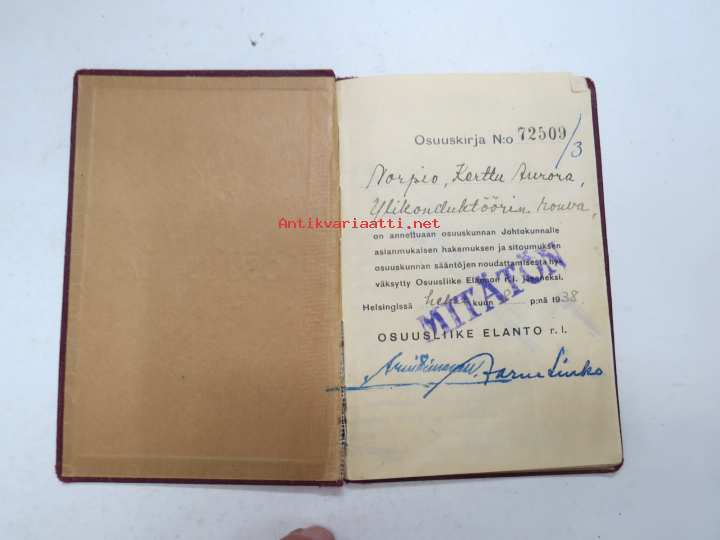 Osuuskirja N:o 72509/3
Norpio, Kerttu Aurora,
Ylikonduktöörin rouva,
Antikvariaatti.net
on annettuaan osuuskunnan Johtokunnalle
asianmukaisen hakemuksen ja sitoumuksen
osuuskunnan sääntöjen noudattamisesta hy-
väksytty Osuusliike Elannon r.l. jäseneksi.
Helsingissä kuun p:nä 1938.
MITÄTÖN
OSUUSLIIKE ELANTO r. l.